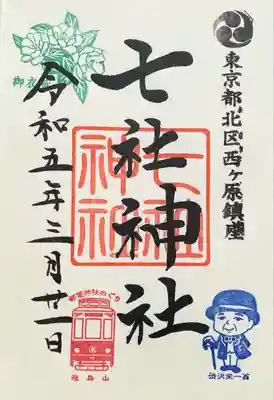 東京都北区西ヶ原鎮座
七社神社
七社
神社
御衣
令和五年三月廿一日
都電神社めぐり
飛鳥山
渋沢栄一翁